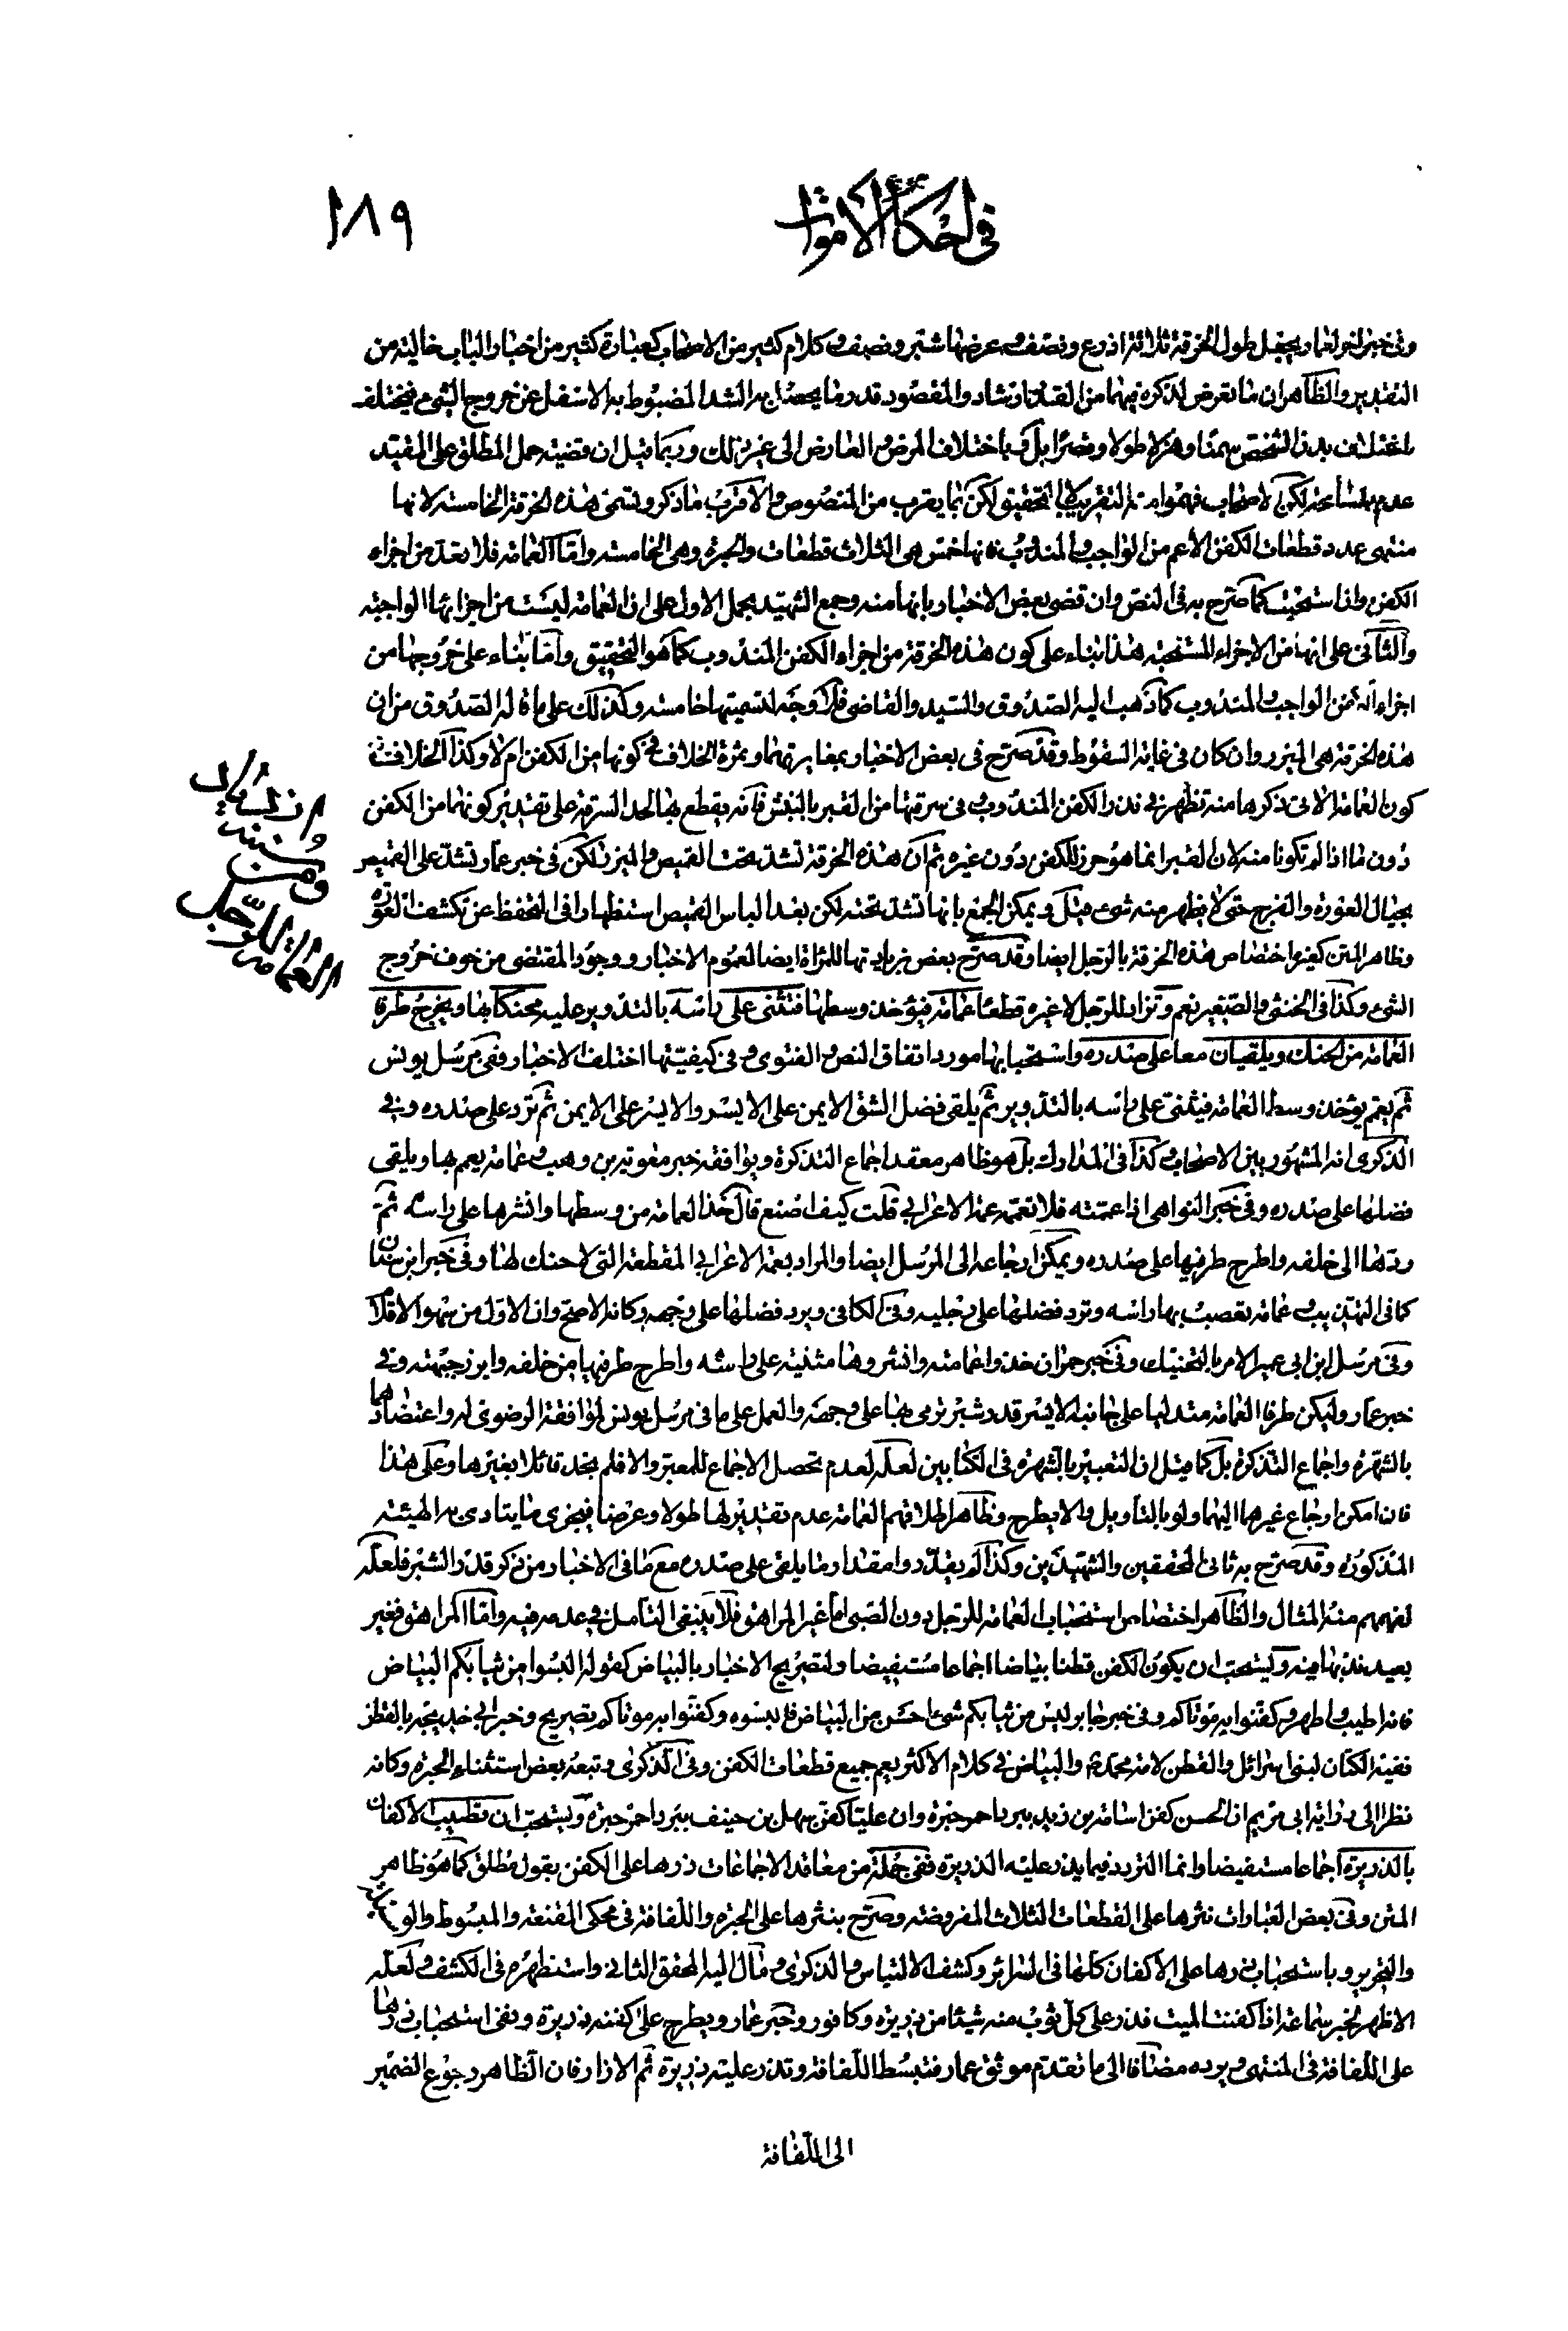 في احكام الاموات
١٨٩
وفي خبر اخر لعمار يجعل طول الخرقة ثلاثة اذرع ونصف وعرضها شبر ونصف وكلام كثير من الاصحاب كعبارة كثير من اخبار الباب خالية من
التقدير والظاهر ان ما تعرض لذكره فيهما من القدر ارشاد والمقصود قدر ما يحصل به الشد المضبوط به الاسفل عن خروج الشيء فيختلف
باختلاف بدن الشخص سمنا وهزلا وطولا وقصرا بل وباختلاف المرض والعارض الى غير ذلك وربما قيل ان قضية حمل المطلق على المقيد
عدم المسامحة لكن الاصحاب فهموا منه التقريب لا التحقيق لكن بما يقرب من المنصوص والاقرب ما ذكر وتسمى هذه الخرقة الخامسة لانها
منتهى عدد قطعات الكفن الاعم من الواجب والمندوب فانها خمس هي الثلاث قطعات والحبرة وهي الخامسة واما العمامة فلا تعد من اجزاء
الكفن وان استحبت كما صرح به في النص وان قضى بعض الاخبار بانها منه وجمع الشهيد بحمل الاول على ان العمامة ليست من اجزائها الواجبة
والثاني على انها من الاجزاء المستحبة هذا بناء على كون هذه الخرقة من اجزاء الكفن المندوب كما هو التحقيق واما بناء على خروجها من
اجزائه من الواجب والمندوب كما ذهب اليه الصدوق والسيد والقاضي فلا وجه لتسميتها خامسة وكذلك على ما قاله الصدوق من ان
هذه الخرقة هي الميزر وان كان في غاية السقوط وقد صرح في بعض الاخبار بمغايرتهما وثمرة الخلاف في كونها من الكفن ام لا وكذا الخلاف في
كون العمامة الاتي ذكرها منه تظهر في نذر الكفن المندوب وفي سرقتها من القبر بالنبش فانه يقطع بها لحد السرقة على تقدير كونهما من الكفن
دون ما اذا لم تكونا منه لان القبر انما هو حرز للكفن دون غيره ثم ان هذه الخرقة تشد تحت القميص والميزر لكن في خبر عمار تشد على القميص
بحيال العورة والفرج حتى لا يظهر منه شيء قيل ويمكن الجمع بانها تشد تحته لكن بعد الباس القميص استظهارا في التحفظ عن تكشف العورة
وظاهر المتن كغيره اختصاص هذه الخرقة بالرجل ايضا وقد صرح بعض بزيادتها للمراة ايضا لعموم الاخبار ووجود المقتضي من خوف خروج
الشيء وكذا في الخنثى والصغير نعم وتزاد للرجل لا غيره قطعا عمامة فيؤخذ وسطها فتثنى على راسه بالتدوير عليه محنكا بها ويخرج طرفا
العمامة من الحنك ويلقيان معا على صدره واستحبابها مورد اتفاق النص والفتوى وفي كيفيتها اختلف الاخبار وففي مرسل يونس
ثم يعمم يؤخذ وسط العمامة فيثنى على راسه بالتدوير ثم يلقى فضل الشق الايمن على الايسر والايسر على الايمن ثم تمد على صدره وفي
الذكرى انه المشهور بين الاصحاب وكذا في المدارك بل هو ظاهر معقد اجماع التذكرة ويوافقه خبر معوية بن وهب وعمامة يعمم بها ويلقى
فضلها على صدره وفي خبر النواهي اذا عممته فلا تعممه عمة الاعرابي قلت كيف اصنع قال خذ العمامة من وسطها وانشرها على راسه ثم
ردها الى خلفه واطرح طرفيها على صدره ويمكن ارجاعه الى المرسل ايضا والمراد بعمة الاعرابي المقطعة التي لا حنك لها وفي خبر ابن سنان
كما في التهذيب وعمامة تعصب بها راسه وترد فضلها على رجليه وفي الكافي ويرد فضلها على وجهه وكانه الاصح وان الاول من سهو الاقلام
وفي مرسل ابن ابي عمير الامر بالتحنيك وفي خبر حمران خذوا عمامته وانشروها مثنية على راسه واطرح طرفيها من خلفه وابرز جبهته وفي
خبر عمار وليكن طرفا العمامة متدليا على جانبه الايسر قدر شبر ترمى بها على وجهه والعمل على ما في مرسل يونس لموافقة الرضوي له واعتضادهما
بالشهرة واجماع التذكرة بل كما قيل ان التعبير بالشهرة في الكتابين لعله لعدم تحصل الاجماع للمعتبر والا فلم نجد قائلا بغيرها وعلى هذا
فان امكن ارجاع غيرهما اليهما ولو بالتاويل والا يطرح وظاهر اطلاقهم العمامة عدم تقدير لها طولا وعرضا فيجزي ما يتادى به الهيئة
المذكورة وقد صرح به ثاني المحققين والشهيدين وكذا لم يقدروا مقدار ما يلقى على صدره مع ما في الاخبار من ذكر قدر الشبر فلعله
لفهمهم منه المثال والظاهر اختصاص استحباب العمامة للرجل دون الصبي اما غير المراهق فلا ينبغي التامل في عدمه فيه واما المراهق فغير
بعيد ندبها فيه ويستحب ان يكون الكفن قطنا بياضا اجماعا مستفيضا ولتصريح الاخبار بالبياض كقوله البسوا من ثيابكم البياض
فانه اطيب واطهر وكفنوا به موتاكم وفي خبر جابر ليس من ثيابكم شيء احسن من البياض فالبسوه وكفنوا به موتاكم تصريح وخبر ابي خديجة بالقطن
ففيه الكتان لبني اسرائل والقطن لامة محمد والبياض في كلام الاكثر يعم جميع قطعات الكفن وفي الذكرى وتبعه بعض استثناء الحبرة وكانه
نظرا الى رواية ابي مريم ان الحسن كفن اسامة بن زيد ببرد احمر حبرة وان عليا كفن سهل بن حنيف ببرد احمر حبرة ويستحب ان تطيب الاكفان
بالذريرة اجماعا مستفيضا وانما التردد فيما يذر عليه الذريرة ففي جملة من معاقد الاجماعات ذرها على الكفن بقول مطلق كما هو ظاهر
المتن وفي بعض العبارات نثرها على القطعات الثلاث المفروضة وصرح بنثرها على الحبرة واللفافة في محكي المقنعة والمبسوط والو
والتحرير وباستحباب ذرها على الاكفان كلها في السرائر وكشف الالتباس والذكرى ومال اليه المحقق الثاني واستظهره في الكشف ولعله
الاظهر لخبر سماعة اذا كفنت الميت فذر على كل ثوب منه شيئا من ذريرة وكافور وخبر عمار ويطرح على كفنه ذريرة ونفي استحباب ذرها
على اللفافة في المنتهى ويرده مضافا الى ما تقدم موثق عمار فتبسط اللفافة وتذر عليه ذريرة ثم الازار فان الظاهر رجوع الضمير
الى اللفافة
العمامة للرجل